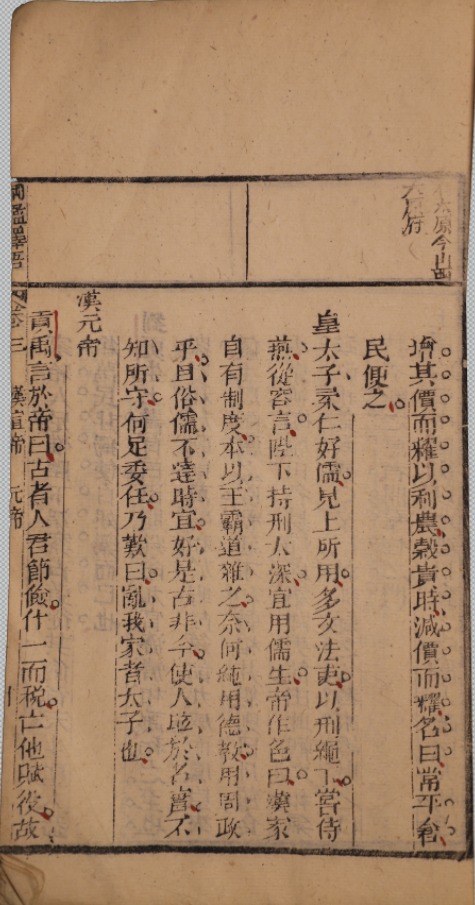 太原今山西
太原府
增其價而糴以利農穀貴時減價而糶名曰常平倉
民便之
皇太子柔仁好儒見上所用多文法吏以刑繩下嘗侍
燕從容言陛下持刑太深宜用儒生帝作色曰漢家
自有制度本以王霸道雜之奈何純用德教用周政
乎且俗儒不達時宜好是古非今使人眩於名實不
知所守何足委任乃歎曰亂我家者太子也
漢元帝
貢禹言於帝曰古者人君節儉什一而稅亡他賦役故
綱鑑擇語 卷三 漢宣帝 元帝